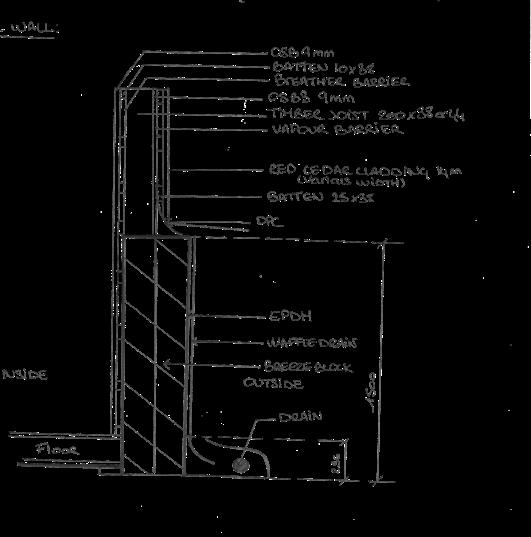 WALL:
OSB 9mm
BATTEN 10x38
BREATHER BARRIER
OSB3 9mm
TIMBER JOIST
VAPOUR BARRIER
RED CEDAR CLADDING
(VARIOUS WIDTH)
BATTEN 25x38
DPC
EPDM
WAFFLE DRAIN
BREEZE BLOCK
INSIDE
OUTSIDE
1500
DRAIN
FLOOR